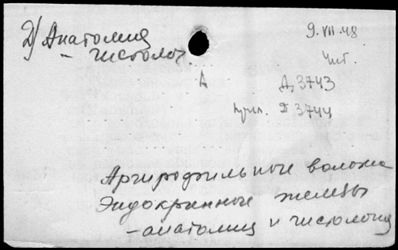 2) Анатомия
- гистолог.
9.VIII.48
Чит.
А Д 3743
прил. Д 3744
Аргирофильные волокна
Эндокринные железы
- анатомия и гистология